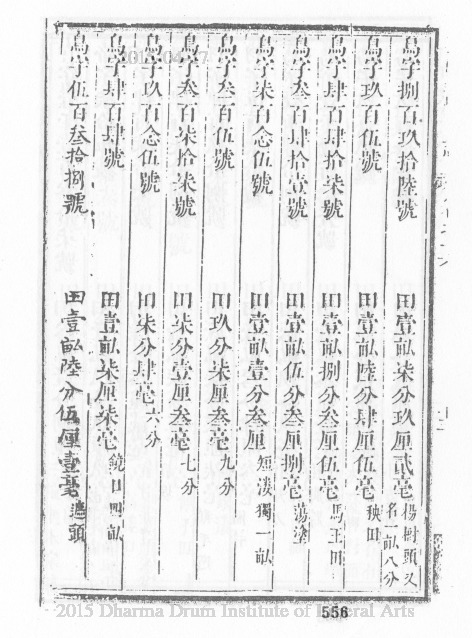 鳥字捌百玖拾陸號 田壹畝柒分玖厘貳毫 楊樹頭又名一畝八分
鳥字玖百伍號 田壹畝陸分肆厘伍毫 秧田
鳥字肆百肆拾柒號 田壹畝捌分叁厘伍毫 馬王田
鳥字叁百肆拾壹號 田壹畝伍分叁厘捌毫 蕩塗
鳥字柒百念伍號 田壹畝壹分叁厘 短溇獨一畝
鳥字叁百伍號 田玖分柒厘叁毫 九分
鳥字叁百柒拾柒號 田柒分壹厘叁毫 七分
鳥字玖百念伍號 田柒分肆毫 六分
鳥字肆百肆號 田壹畝柒厘柒毫 鏡口四畝
鳥字伍百叁拾捌號 田壹畝陸分伍厘壹毫 頭
556
2015 Dharma Drum Institute of Liberal Arts